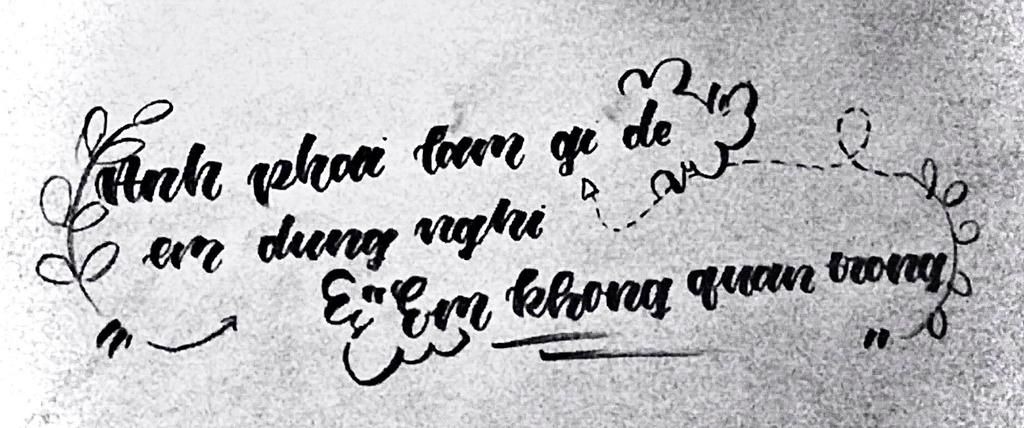 Anh phai lam gi de
em dung nghi
Em khong quan trong